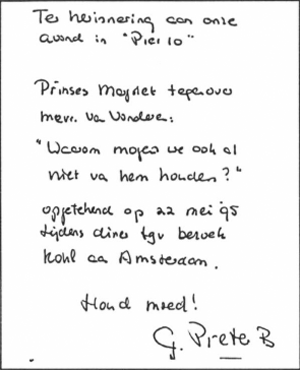 Ter herinnering aan onze
avond in "Pier 10"
Prinses Magriet tegenover
mevr. va Vonderen:
"Waarom mogen we ook al
niet va hem houden?"
opgetekend op 22 mei '95
tijdens diner tgv bezoek
Kohl aa Amsterdam.
Houd moed!
G. Prete B